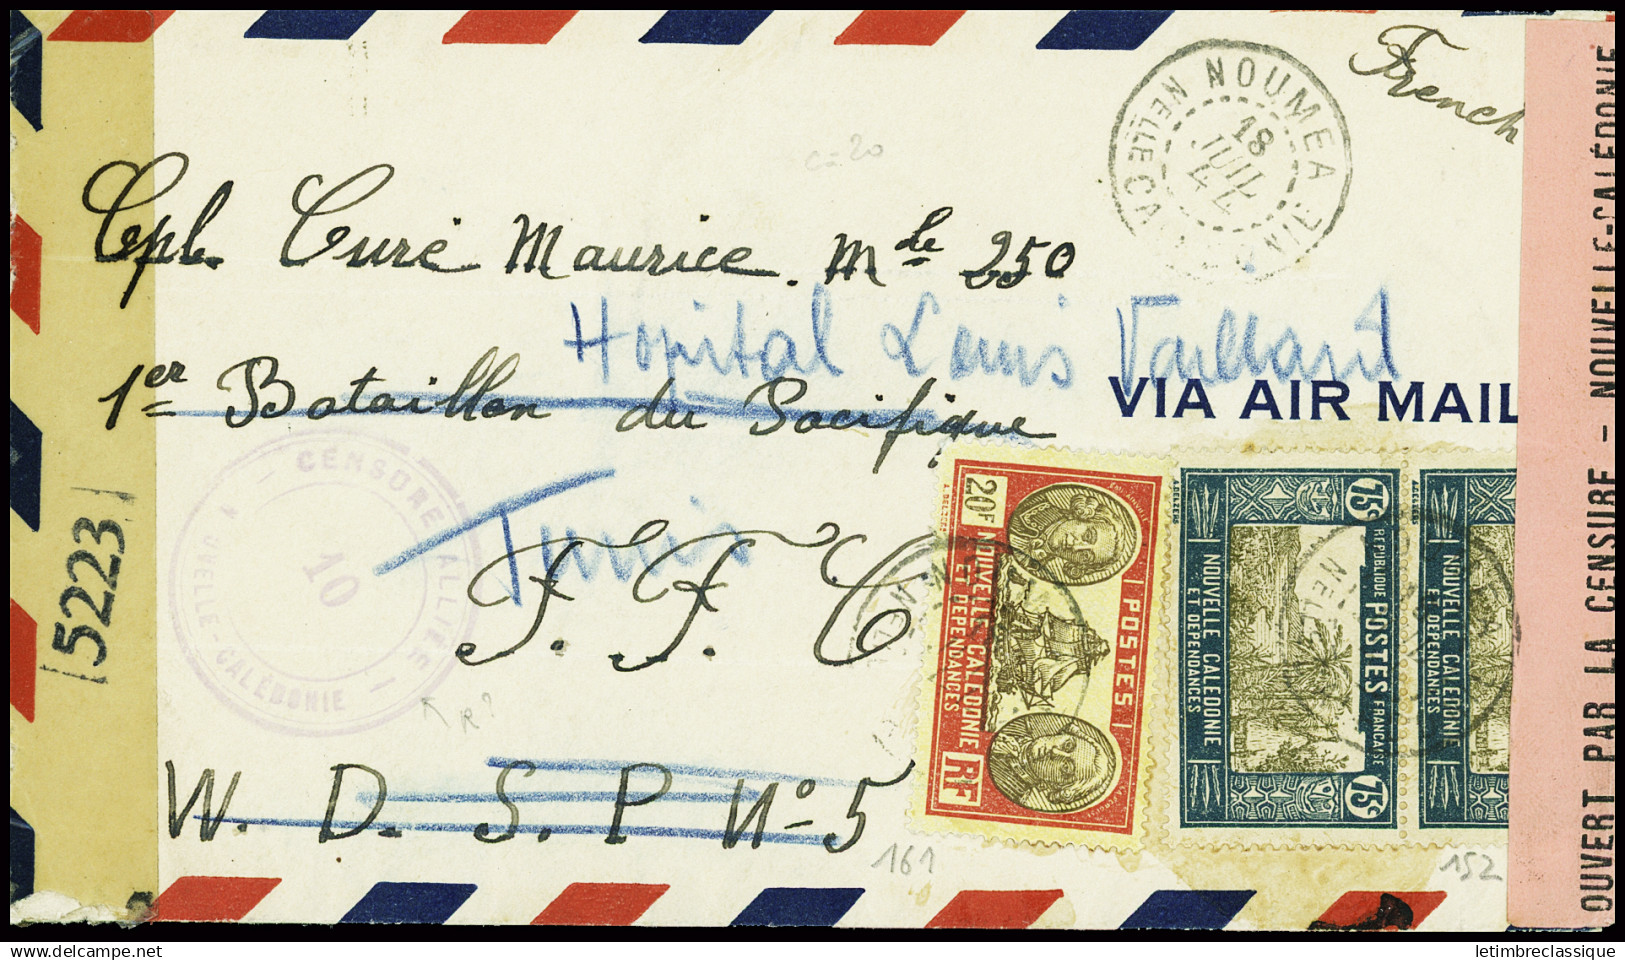 French
NOUMEA
18
JUIL
44
Nelle CALEDONIE
ca 20
Cpl. Curé Maurice. Mle 250
Hopital Louis Vaillard
1er Bataillon du Pacifique
VIA AIR MAIL
Tunis
F. F. C
W. D. S. P No 5
5223
CENSORE ALLIÉE
NOUVELLE-CALÉDONIE
10
R?
20F
NOUVELLE CALEDONIE
ET DEPENDANCES
POSTES
RF
75c
REPUBLIQUE FRANCAISE
POSTES
NOUVELLE CALEDONIE
ET DEPENDANCES
75c
75c
NOUVELLE CALEDONIE
ET DEPENDANCES
161
152
OUVERT PAR LA CENSURE - NOUVELLE-CALÉDONIE
delcampe.net
letimbreclassique